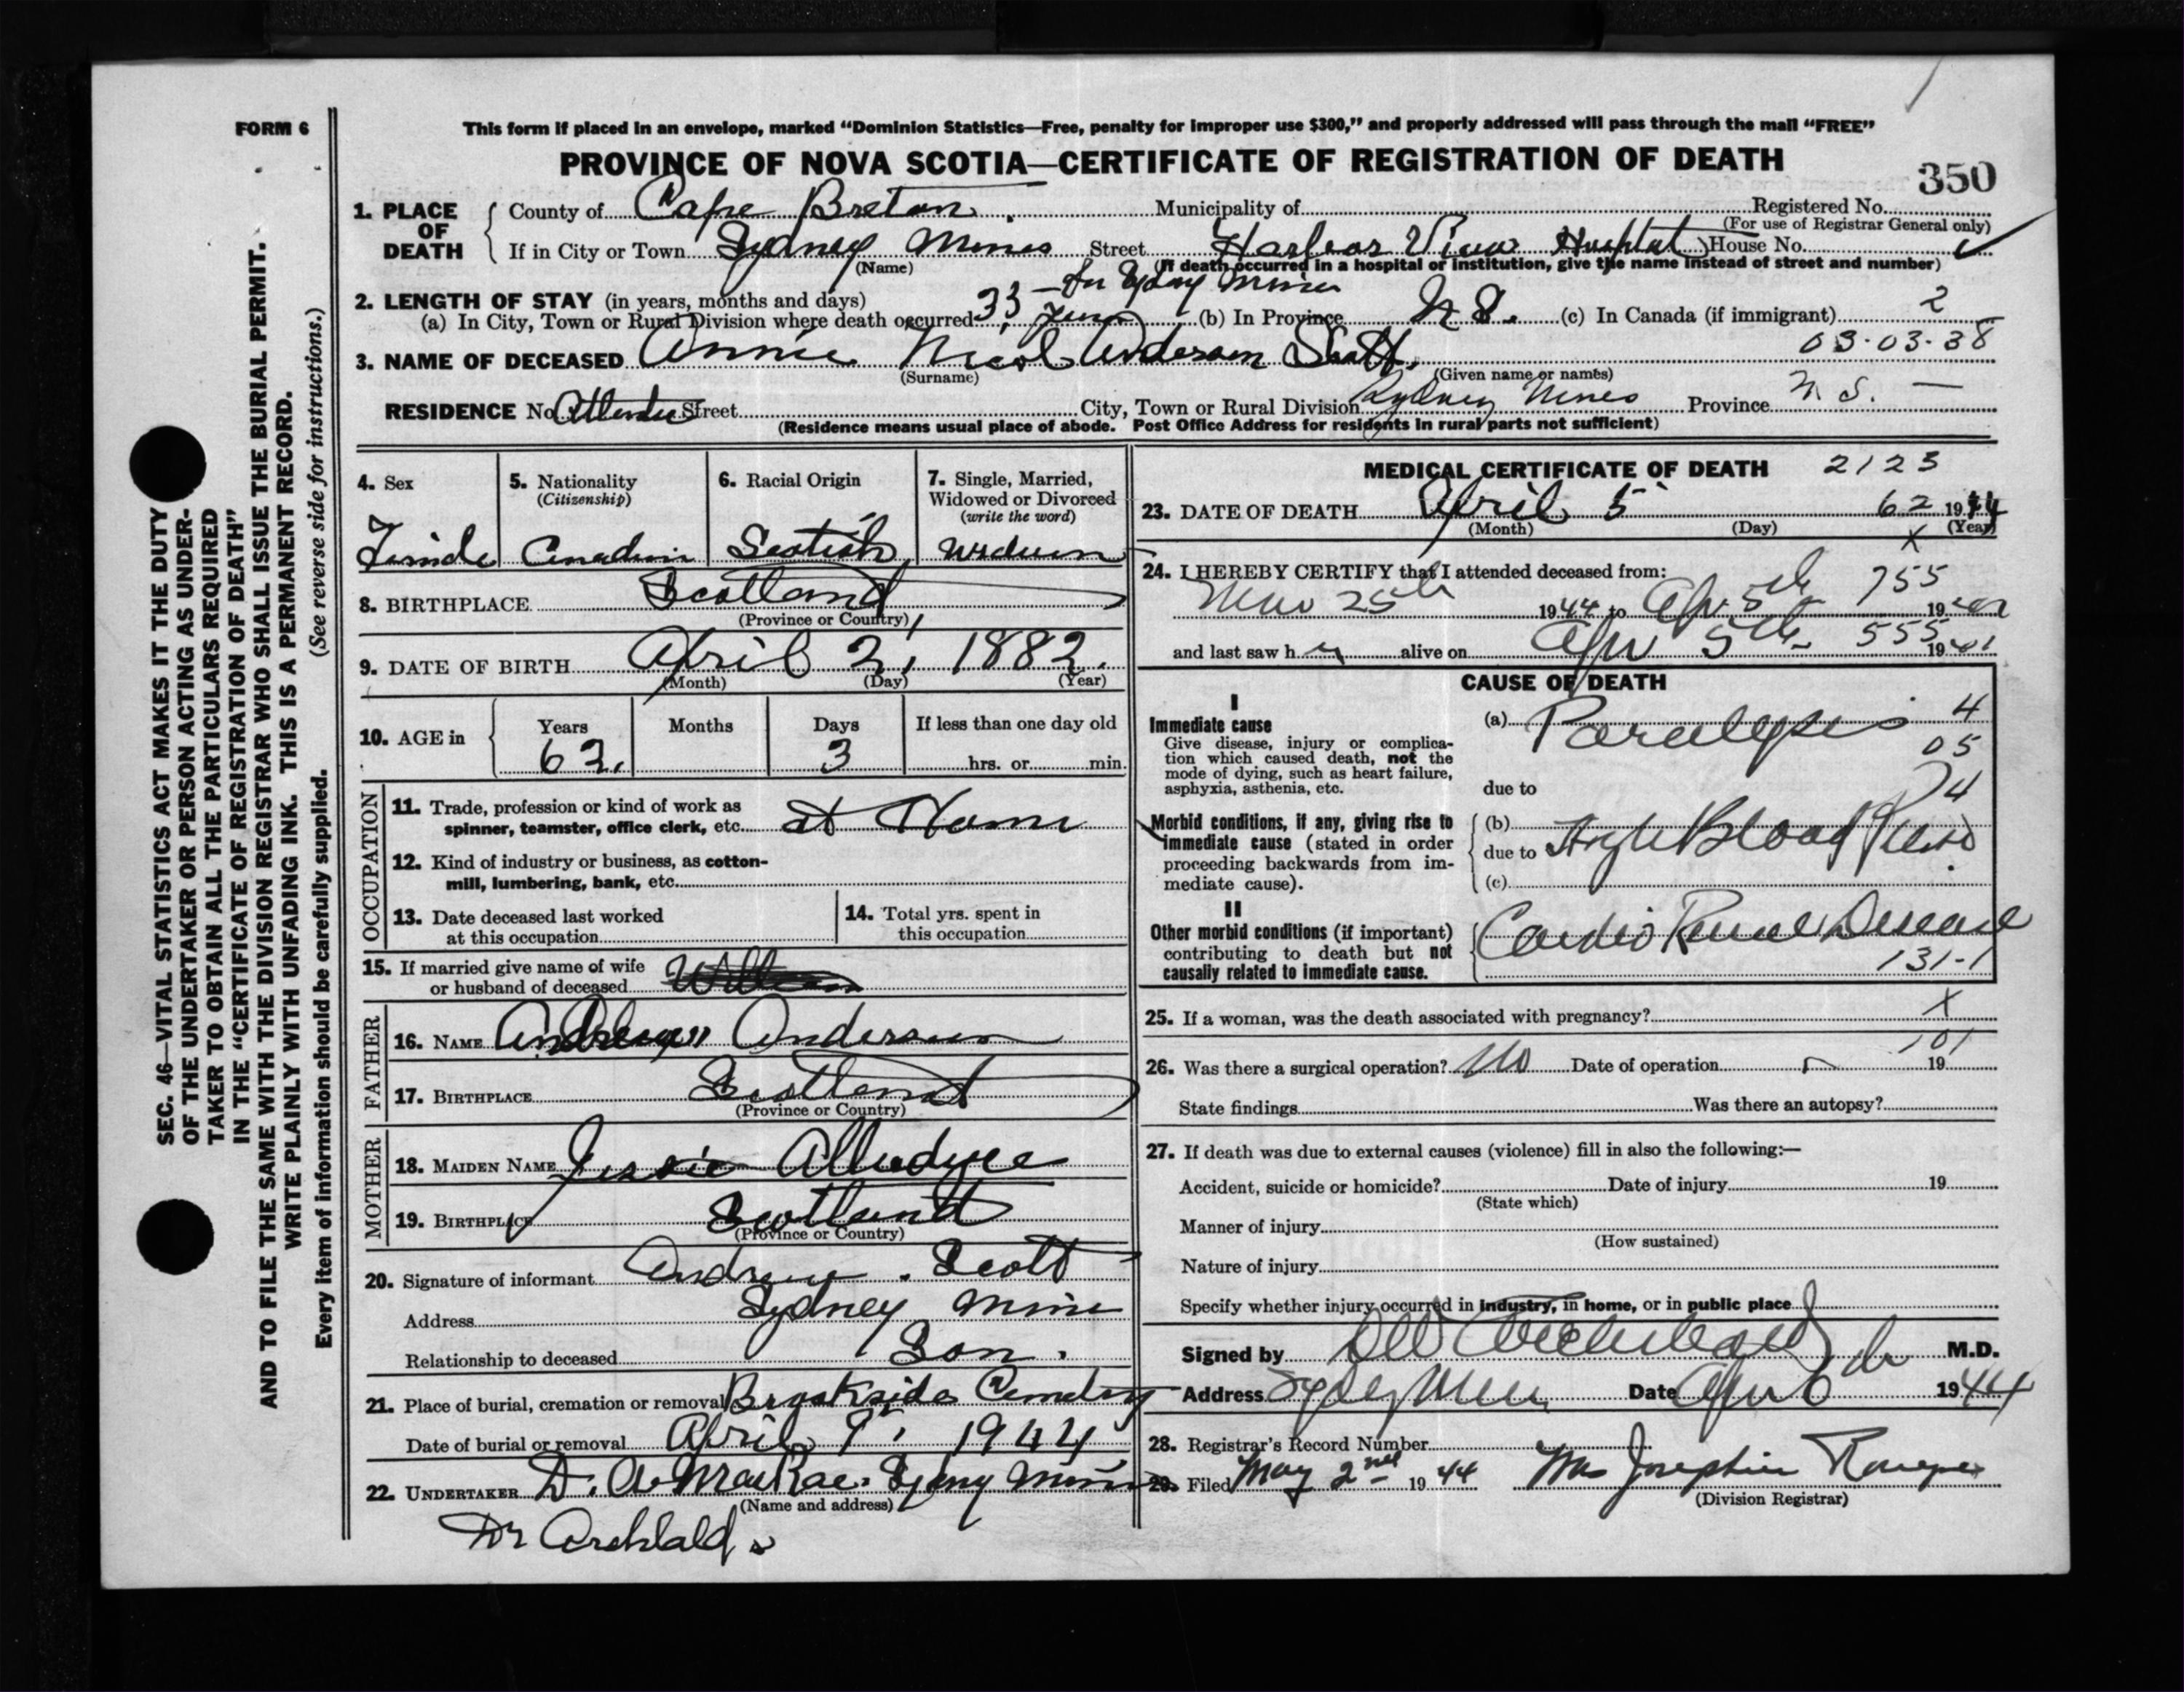 FORM 6
This form if placed in an envelope, marked “Dominion Statistics—Free, penalty for improper use $300,” and properly addressed will pass through the mail “FREE”
PROVINCE OF NOVA SCOTIA—CERTIFICATE OF REGISTRATION OF DEATH
350
1. PLACE OF DEATH
County of Cape Breton. Municipality of Registered No.
(For use of Registrar General only)
If in City or Town Sydney Mines Street Harbour View Hospital House No.
(Name) (If death occurred in a hospital or institution, give the name instead of street and number)
2. LENGTH OF STAY (in years, months and days) - In Sydney Mines
(a) In City, Town or Rural Division where death occurred 33 (b) In Province N S. (c) In Canada (if immigrant) 2
03-03-38
3. NAME OF DECEASED Annie Nicol Anderson Scott.
(Surname) (Given name or names)
RESIDENCE No. Street City, Town or Rural Division Sydney Mines Province N. S. —
(Residence means usual place of abode. Post Office Address for residents in rural parts not sufficient)
4. Sex
Female
5. Nationality
(Citizenship)
Canadian
6. Racial Origin
Scotish
7. Single, Married,
Widowed or Divorced
(write the word)
Widow
8. BIRTHPLACE Scotland
(Province or Country)
9. DATE OF BIRTH April 2, 1882.
(Month) (Day) (Year)
10. AGE in Years Months Days If less than one day old
62. 3 hrs. or min.
OCCUPATION
11. Trade, profession or kind of work as
spinner, teamster, office clerk, etc. at Home
12. Kind of industry or business, as cotton-
mill, lumbering, bank, etc.
13. Date deceased last worked
at this occupation
14. Total yrs. spent in
this occupation
15. If married give name of wife
or husband of deceased William
FATHER
16. NAME Andrew Anderson
17. BIRTHPLACE Scotland
(Province or Country)
MOTHER
18. MAIDEN NAME Jessie
19. BIRTHPLACE Scotland
(Province or Country)
20. Signature of informant Andrew Scott
Address Sydney Mines
Relationship to deceased Son.
21. Place of burial, cremation or removal Brookside Cemetery
Date of burial or removal April 9, 1944
22. UNDERTAKER D. A. MacRae. Sydney Mines
(Name and address)
Dr Archibald
MEDICAL CERTIFICATE OF DEATH 2123
23. DATE OF DEATH April 5 62 1944
(Month) (Day) (Year)
X
24. I HEREBY CERTIFY that I attended deceased from:
Mar 25th 1944 to Apr 5th 755 19
and last saw her alive on Apr 5th 555 19
CAUSE OF DEATH
I
Immediate cause
Give disease, injury or complica-
tion which caused death, not the
mode of dying, such as heart failure,
asphyxia, asthenia, etc.
(a) Paralysis 4
05
due to 74
Morbid conditions, if any, giving rise to
immediate cause (stated in order
proceeding backwards from im-
mediate cause).
(b)
due to High Blood Press
(c)
II
Other morbid conditions (if important)
contributing to death but not
causally related to immediate cause.
Cardio Renal Disease
131-1
25. If a woman, was the death associated with pregnancy? X
101
26. Was there a surgical operation? No Date of operation 19
State findings Was there an autopsy?
27. If death was due to external causes (violence) fill in also the following:—
Accident, suicide or homicide? Date of injury 19
(State which)
Manner of injury
(How sustained)
Nature of injury
Specify whether injury occurred in industry, in home, or in public place
Signed by Archibald Jr M.D.
Address Sydney Mines Date Apr 6 1944
28. Registrar's Record Number
29. Filed May 2nd 1944 Mrs Josephine
(Division Registrar)
SEC. 46—VITAL STATISTICS ACT MAKES IT THE DUTY
OF THE UNDERTAKER OR PERSON ACTING AS UNDER-
TAKER TO OBTAIN ALL THE PARTICULARS REQUIRED
IN THE “CERTIFICATE OF REGISTRATION OF DEATH”
AND TO FILE THE SAME WITH THE DIVISION REGISTRAR WHO SHALL ISSUE THE BURIAL PERMIT.
WRITE PLAINLY WITH UNFADING INK. THIS IS A PERMANENT RECORD.
Every item of information should be carefully supplied. (See reverse side for instructions.)